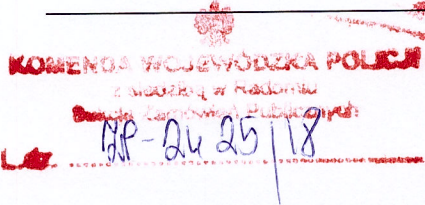 KOMENDA WOJEWÓDZKA POLICJI
z siedzibą w Radomiu
Zamówień Publicznych
ZP-2425/18